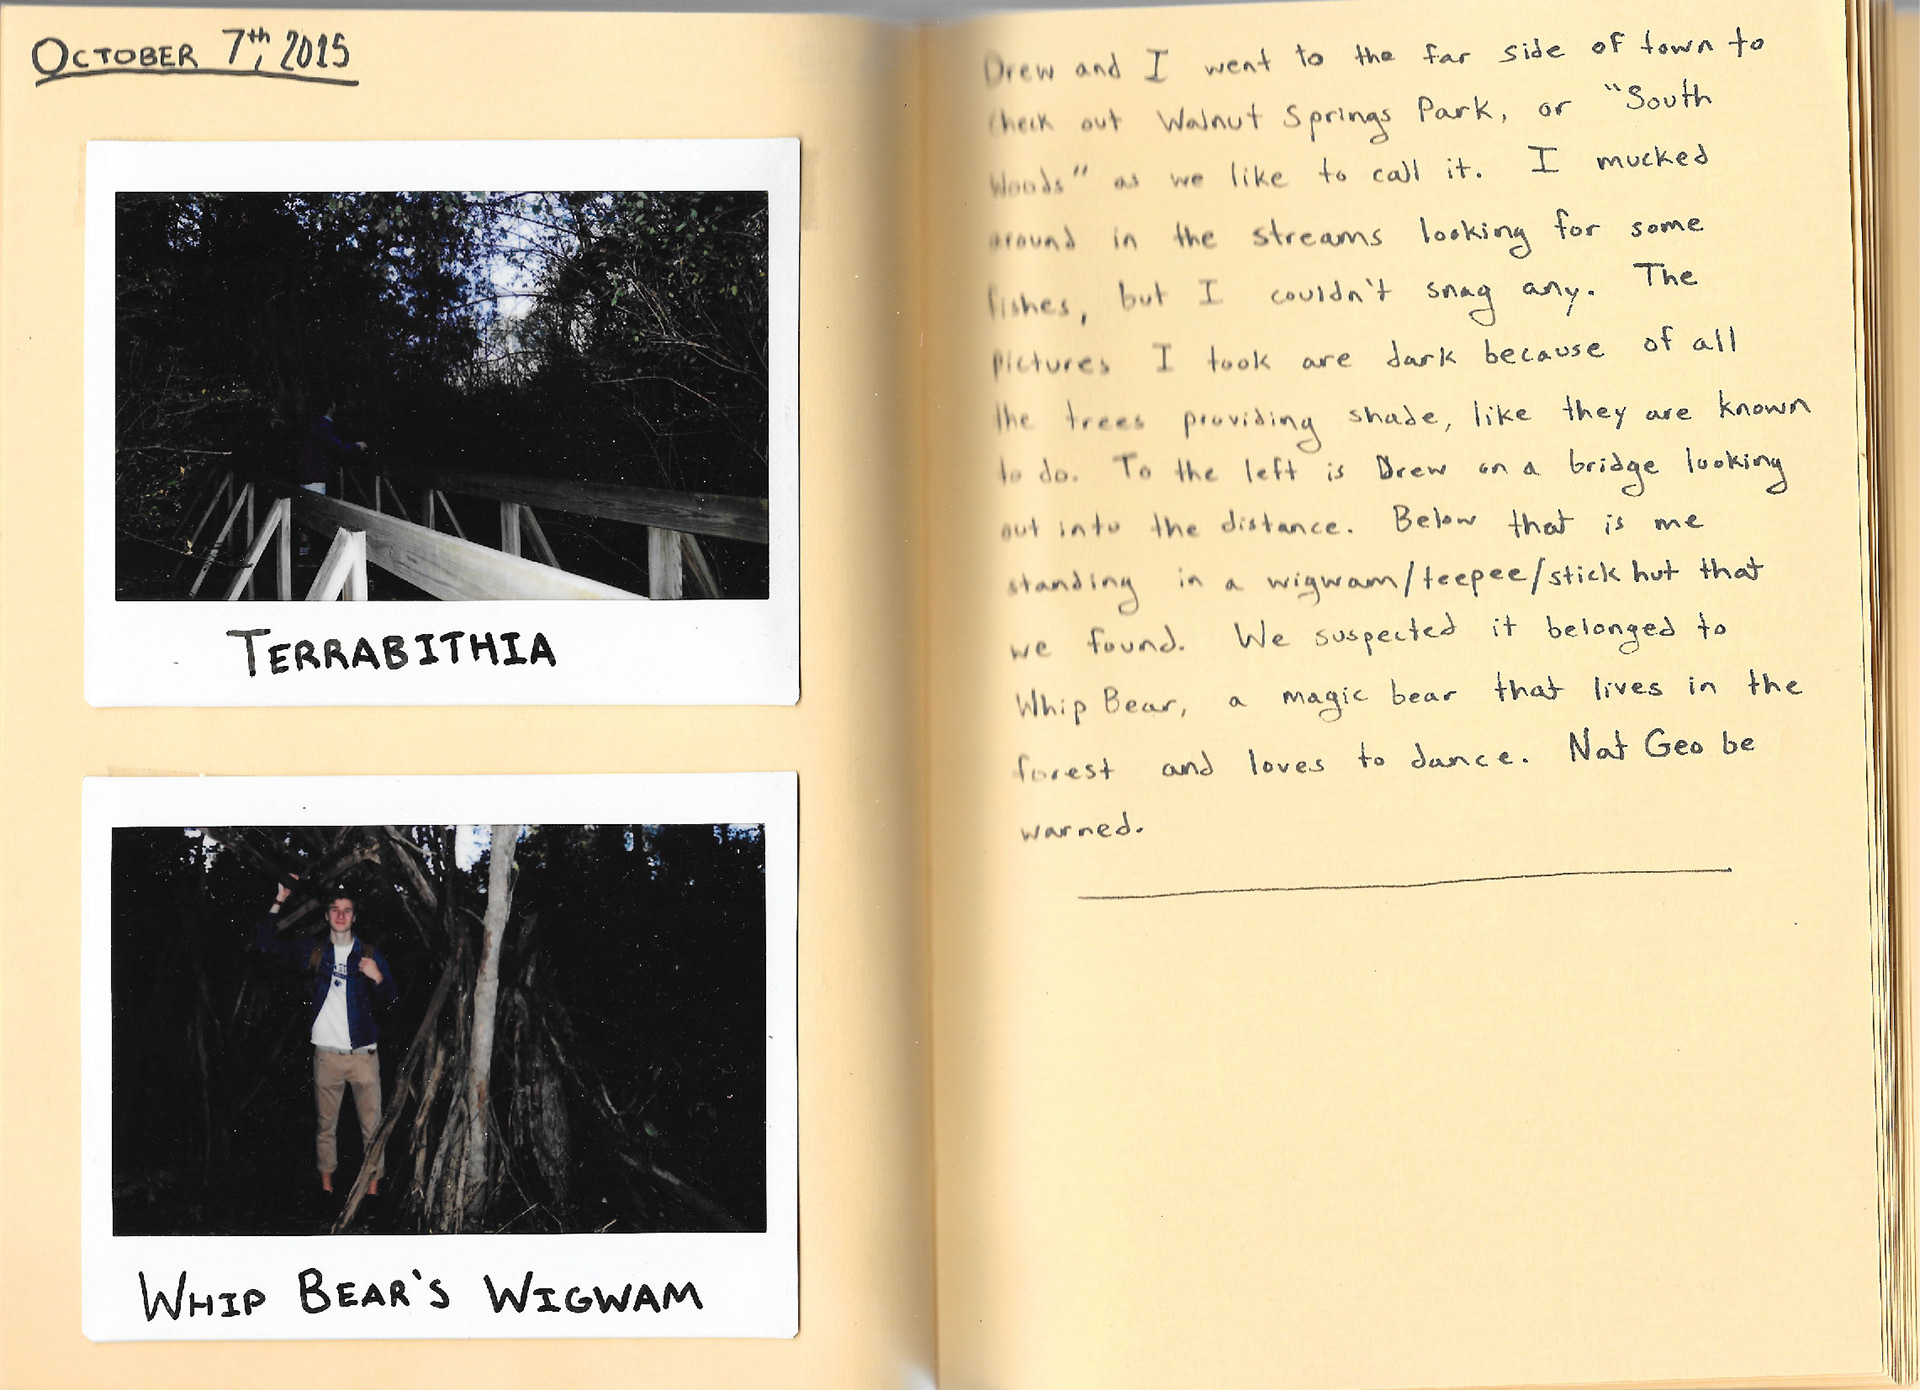 OCTOBER 7th, 2015
TERRABITHIA
WHIP BEAR'S WIGWAM
Drew and I went to the far side of town to
check out Walnut Springs Park, or "South
Woods" as we like to call it. I mucked
around in the streams looking for some
fishes, but I couldn't snag any. The
pictures I took are dark because of all
the trees providing shade, like they are known
to do. To the left is Drew on a bridge looking
out into the distance. Below that is me
standing in a wigwam/teepee/stick hut that
we found. We suspected it belonged to
Whip Bear, a magic bear that lives in the
forest and loves to dance. Nat Geo be
warned.